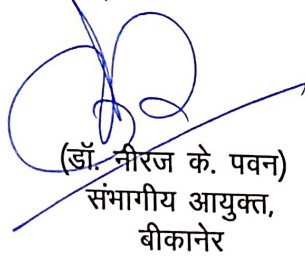 (डॉ. नीरज के. पवन)
संभागीय आयुक्त,
बीकानेर